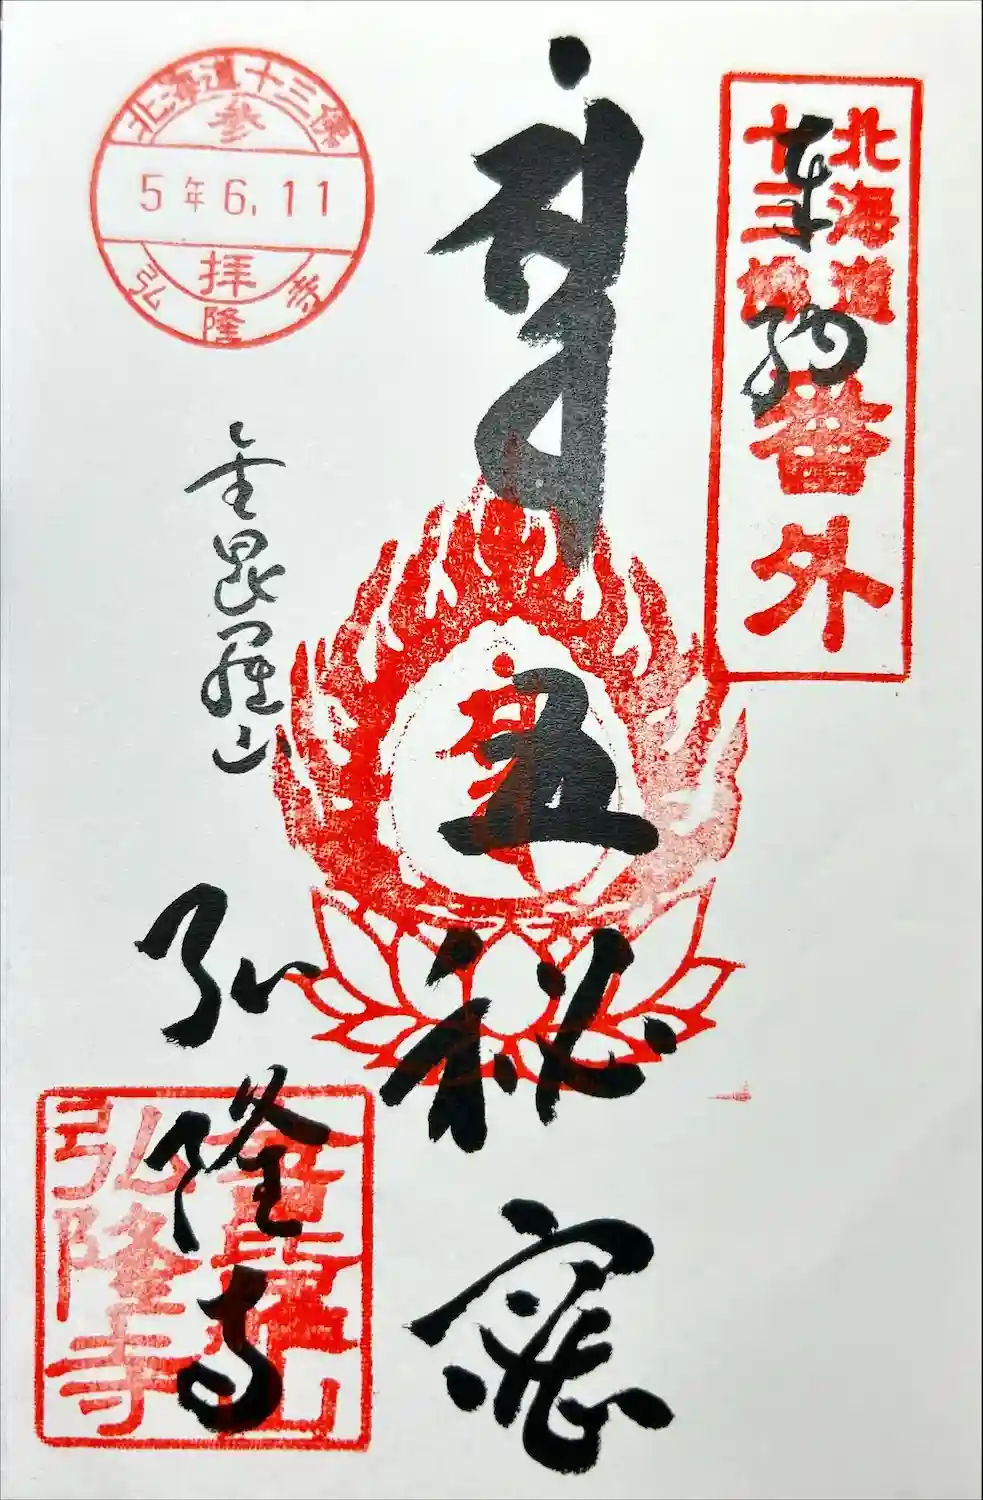 奉納
北海道
十三佛
番外
五秘密
金毘羅山
弘隆寺
北海道十三佛
参
5年6.11
拝
弘隆寺
金毘羅山
弘隆寺